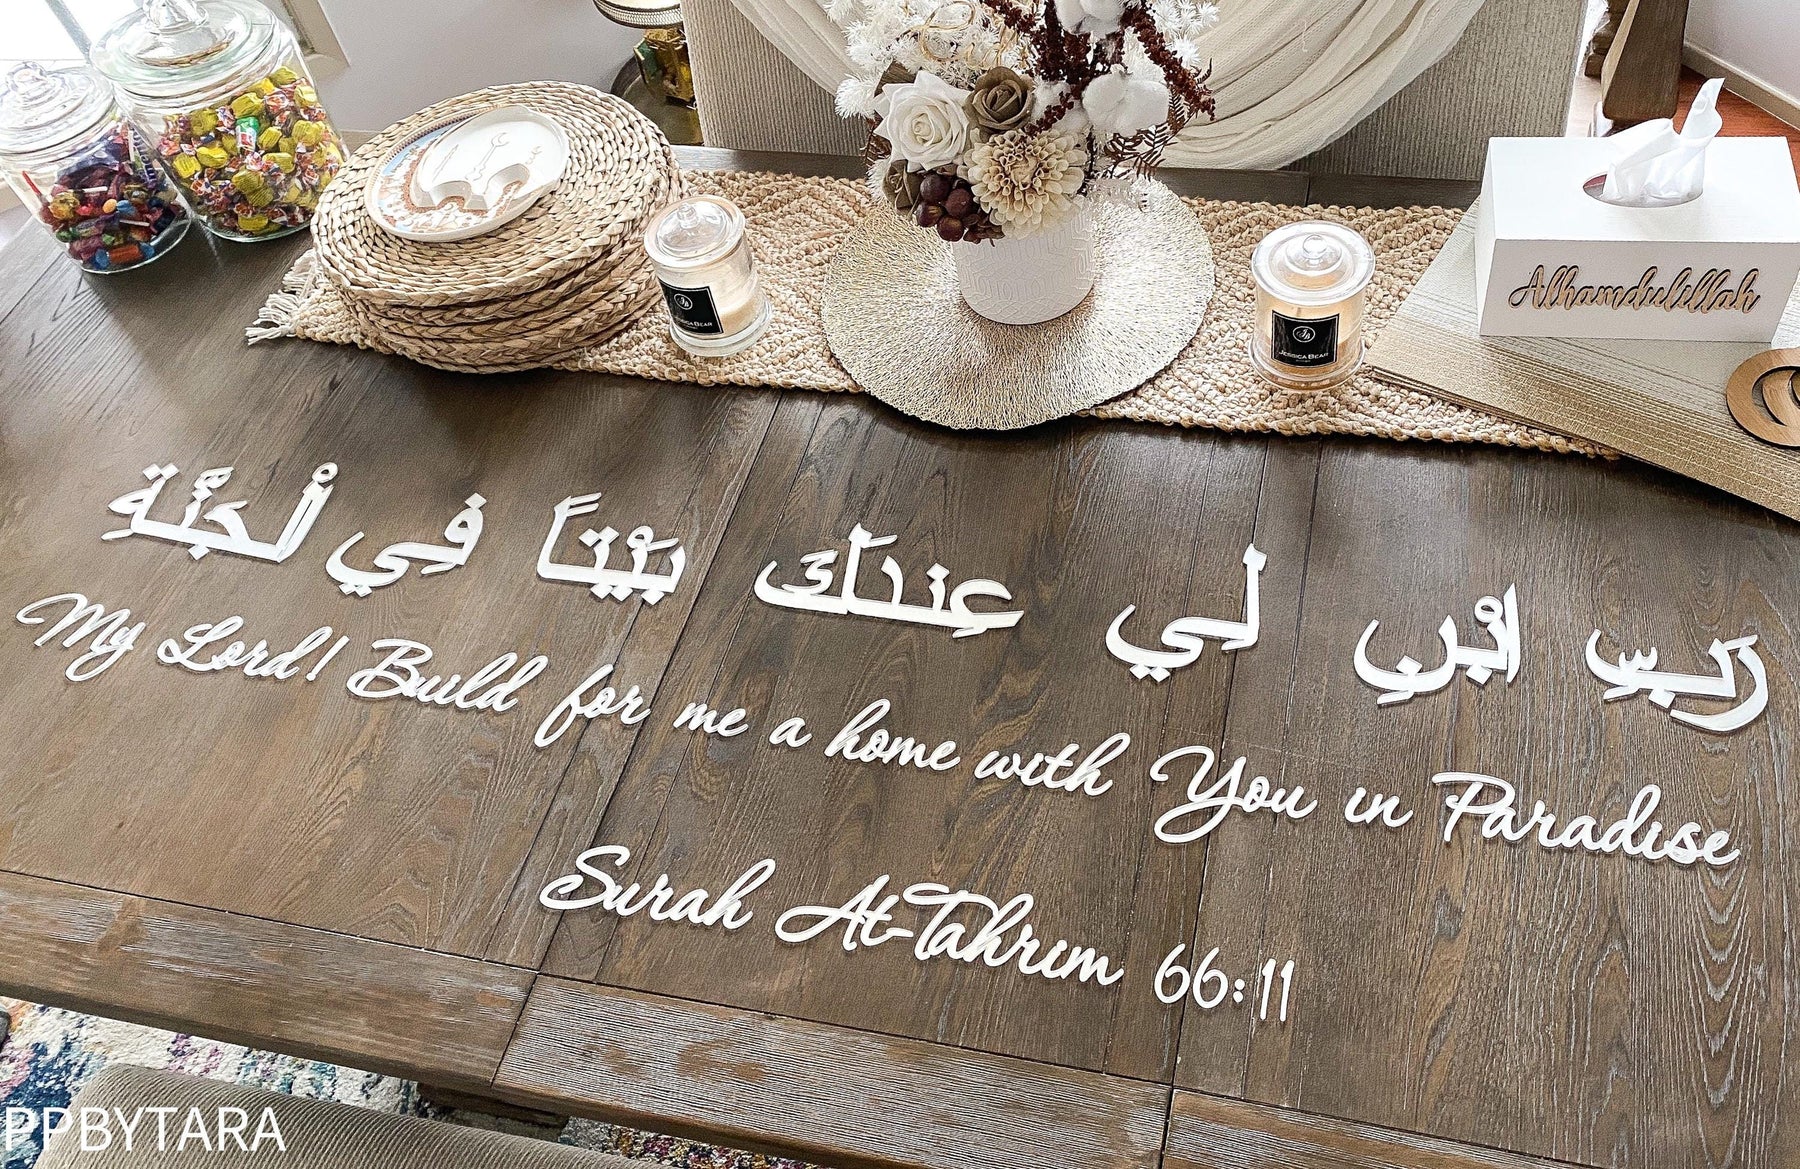 Alhamdulillah
JB
JESSICA BEAR
JB
JESSICA BEAR
رَبِّ ابْنِ لِي عِندَكَ بَيْتًا فِي ٱلْجَنَّةِ
My Lord! Build for me a home with You in Paradise
Surah At-Tahrim 66:11
PPBYTARA